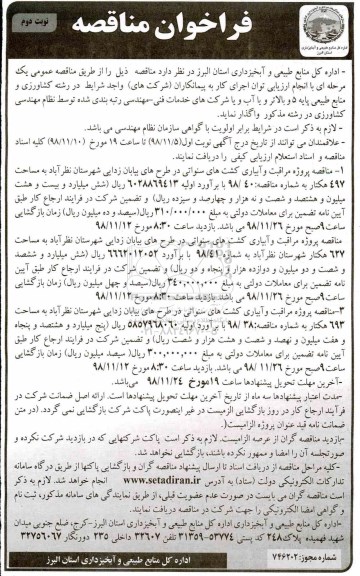 فراخوان مناقصه
نوبت دوم
اداره کل منابع طبیعی و آبخیزداری استان البرز
- اداره کل منابع طبیعی و آبخیزداری استان البرز در نظر دارد مناقصه ذیل را از طریق مناقصه عمومی یک
مرحله ای با انجام ارزیابی توان اجرای کار به پیمانکاران (شرکت های) واجد شرایط در رشته کشاورزی و
منابع طبیعی پایه ۵ و بالاتر و یا آب و یا شرکت های خدمات فنی-مهندسی رتبه بندی شده توسط نظام مهندسی
کشاورزی در رشته مذکور واگذار نماید.
- لازم به ذکر است در شرایط برابر اولویت با گواهی سازمان نظام مهندسی می باشد.
-علاقمندان می توانند از تاریخ درج آگهی نوبت اول(۹۸/۱۱/۵) تا ساعت ۱۹ مورخ (۹۸/۱۱/۱۰) کلیه اسناد
مناقصه و اسناد استعلام ارزیابی کیفی را دریافت نمایند.
۱- مناقصه پروژه مراقبت و آبیاری کشت های سنواتی در طرح های بیابان زدایی شهرستان نظرآباد به مساحت
۴۹۷ هکتار به شماره مناقصه: ۴۰/ ۹۸ با برآورد اولیه ۶۰۲۸۸۶۹۴۱۳ ریال (شش میلیارد و بیست و هشت
میلیون و هشتصد و شصت و نه هزار و چهارصد و سیزده ریال) و تضمین شرکت در فرایند ارجاع کار طبق
آیین نامه تضمین برای معاملات دولتی به مبلغ ۳۱۰/۰۰۰/۰۰۰ ریال(سیصد و ده میلیون ریال) زمان بازگشایی
ساعت ۹صبح مورخ ۹۸/۱۱/۲۶ می باشد. بازدید ساعت ۸:۳۰ مورخ ۹۸/۱۱/۱۲
مناقصه پروژه مراقبت و آبیاری کشت های سنواتی در طرح های بیابان زدایی شهرستان نظرآباد به مساحت
۶۳۷ هکتار شهرستان نظرآباد به شماره ۹۸/۴۱ با برآورد ۶۶۶۲۰۱۲۰۵۲ ریال (شش میلیارد و ششصد
و شصت و دو میلیون و دوازده هزار و پنجاه و دو ریال) و تضمین شرکت در فرایند ارجاع کار طبق آیین
نامه تضمین برای معاملات دولتی به مبلغ ۳۴۰,۰۰۰,۰۰۰ ریال(سیصد و چهل میلیون ریال) زمان بازگشایی
ساعت ۹صبح مورخ ۹۸/۱۱/۲۶ می باشد. بازدید ساعت ۸:۳۰ مورخ ۹۸/۱۱/۱۲
۳-مناقصه پروژه مراقبت و آبیاری کشت های سنواتی در طرح های بیابان زدایی شهرستان نظرآباد به مساحت
۶۹۳ هکتار به شماره مناقصه: ۳۸/ ۹۸ با برآورد اولیه ۵۸۵۷۹۶۸۰۶۰ ریال (پنج میلیارد و هشتصد و پنجاه
و هفت میلیون و نهصد و شصت و هشت هزار و شصت ریال) و تضمین شرکت در فرایند ارجاع کار طبق
آیین نامه تضمین برای معاملات دولتی به مبلغ ۳۰۰,۰۰۰,۰۰۰ ریال( سیصد میلیون ریال) زمان بازگشایی
ساعت ۹صبح مورخ ۹۸/۱۱/۲۶ می باشد. بازدید ساعت ۸:۳۰ مورخ ۹۸/۱۱/۱۲
-آخرین مهلت تحویل پیشنهادها ساعت ۱۹مورخ ۹۸/۱۱/۲۴ می‌باشد.
-مدت اعتبار پیشنهادها سه ماه از تاریخ آخرین مهلت تحویل پیشنهادها است. ارائه اصل ضمانت شرکت در
فرآیند ارجاع کار در روز بازگشایی الزامیست در غیر اینصورت پاکت شرکت بازگشایی نمی گردد. (در متن
ضمانت نامه قید عنوان پروژه الزامیست).
-بازدید مناقصه گران از عرصه الزامیست. لازم به ذکر است پاکت شرکتهایی که در بازدید شرکت نکرده و
صورتجلسه آن را امضا و ممهور نکرده باشند، بازگشایی نخواهد شد.
-کلیه مراحل مناقصه از دریافت اسناد تا ارسال پیشنهاد مناقصه گران و بازگشایی پاکتها از طریق درگاه سامانه
تدارکات الکترونیکی دولت (ستاد) به آدرس www.setadiran.ir انجام خواهد شد. لازم به ذکر
است مناقصه گران می بایست در صورت عدم عضویت قبلی، از طریق نمایندگی های سامانه مذکور، ثبت نام
و گواهی امضا الکترونیکی را جهت شرکت در مناقصه دریافت نمایند.
-اداره کل منابع طبیعی و آبخیزداری استان البرز-کرج، ضلع جنوبی میدان
شهید فهمیده پلاک۲۴۸ کد پستی ۵۳۷۷۴-۳۱۳۵۹ تلفن ۳۲۶۰۷ داخلی ۲۳۵ دورنگار ۳۲۷۵۶۰۶۷
شماره مجوز: ۷۴۶۲۰۲
اداره کل منابع طبیعی و آبخیزداری استان البرز